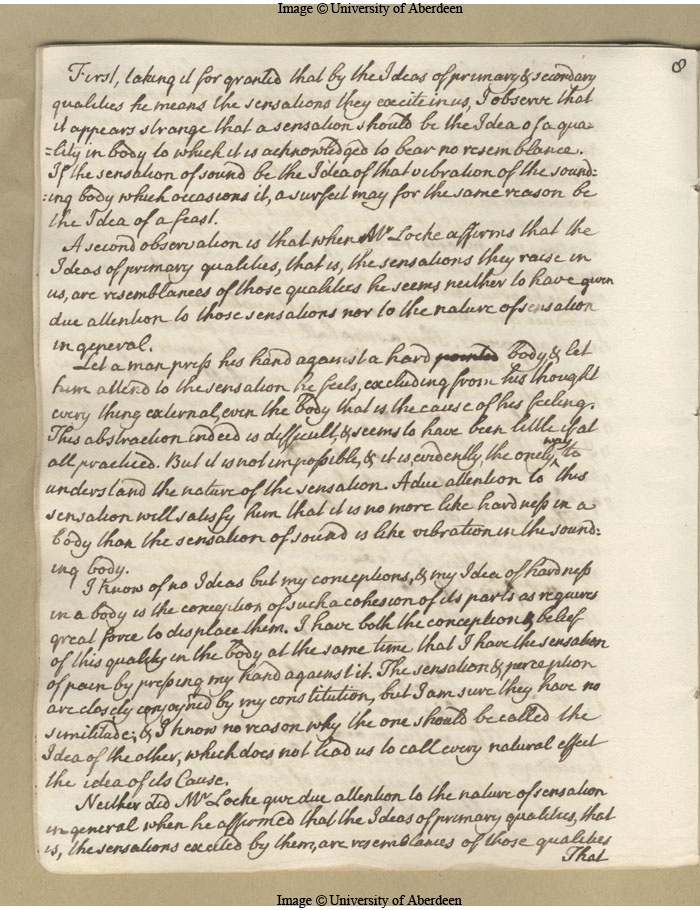 Image © University of Aberdeen
8
First, taking it for granted that by the Ideas of primary & secondary
qualities he means the sensations they excite in us, I observe that
it appears strange that a sensation should be the Idea of a qua-
=lity in body to which it is acknowledged to bear no resemblance.
If the sensation of sound be the Idea of that vibration of the sound:
:ing body which occasions it, a surfeit may for the same reason be
the Idea of a feast.
A second observation is that when Mr Locke affirms that the
Ideas of primary qualities, that is, the sensations they raise in
us, are resemblances of those qualities he seems neither to have given
due attention to those sensations nor to the nature of sensation
in general.
Let a man press his hand against a hard pointed body & let
him attend to the sensation he feels, excluding from his thought
every thing external, even the body that is the cause of his feeling.
This abstraction indeed is difficult, & seems to have been little if at
all practiced. But it is not impossible, & it is evidently the onely way to
understand the nature of the sensation. A due attention to this
sensation will satisfy him that it is no more like hardness in a
body than the sensation of sound is like vibration in the sound:
ing body.
I know of no Ideas but my conceptions, & my Idea of hardness
in a body is the conception of such a cohesion of its parts as requires
great force to displace them. I have both the conception & belief
of this quality in the body at the same time that I have the sensation
of pain by pressing my hand against it. The sensation & perception
are closely conjoyned by my constitution, but I am sure they have no
similitude; & I know no reason why the one should be called the
Idea of the other, which does not lead us to call every natural effect
the idea of its Cause.
Neither did Mr Locke give due attention to the nature of sensation
in general when he affirmed that the Ideas of primary qualities, that
is, the sensations excited by them, are resemblances of those qualities
That
Image © University of Aberdeen